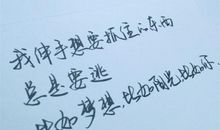 我伸手想要抓住的东西
总是要逃
比如梦想,比如阳光,比如你